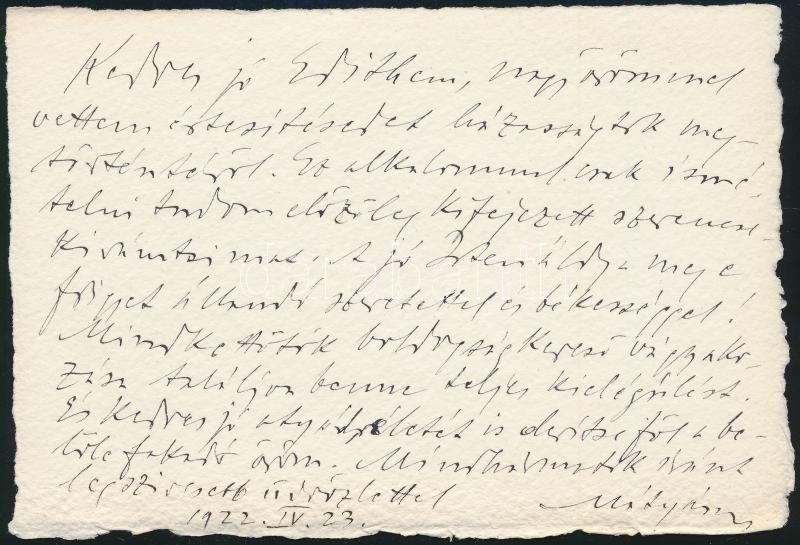 Kedves jó Edithem, nagy örömmel
vettem értesítésedet házasságtok meg-
történtéről. Ez alkalommal csak ismé-
telni tudom előzőleg kifejezett szerencse-
kívánataimat. A jó Isten áldja meg e
frigyet állandó szeretettel és békességgel!
Mindkettőtök boldogságkereső vágyako-
zása találjon benne teljes kielégülést.
És kedves jó atyád életét is derítse föl a be-
lőle fakadó öröm. Mindhármatok iránt
legszívesebb üdvözlettel
Mátyás
1922. IV. 23.